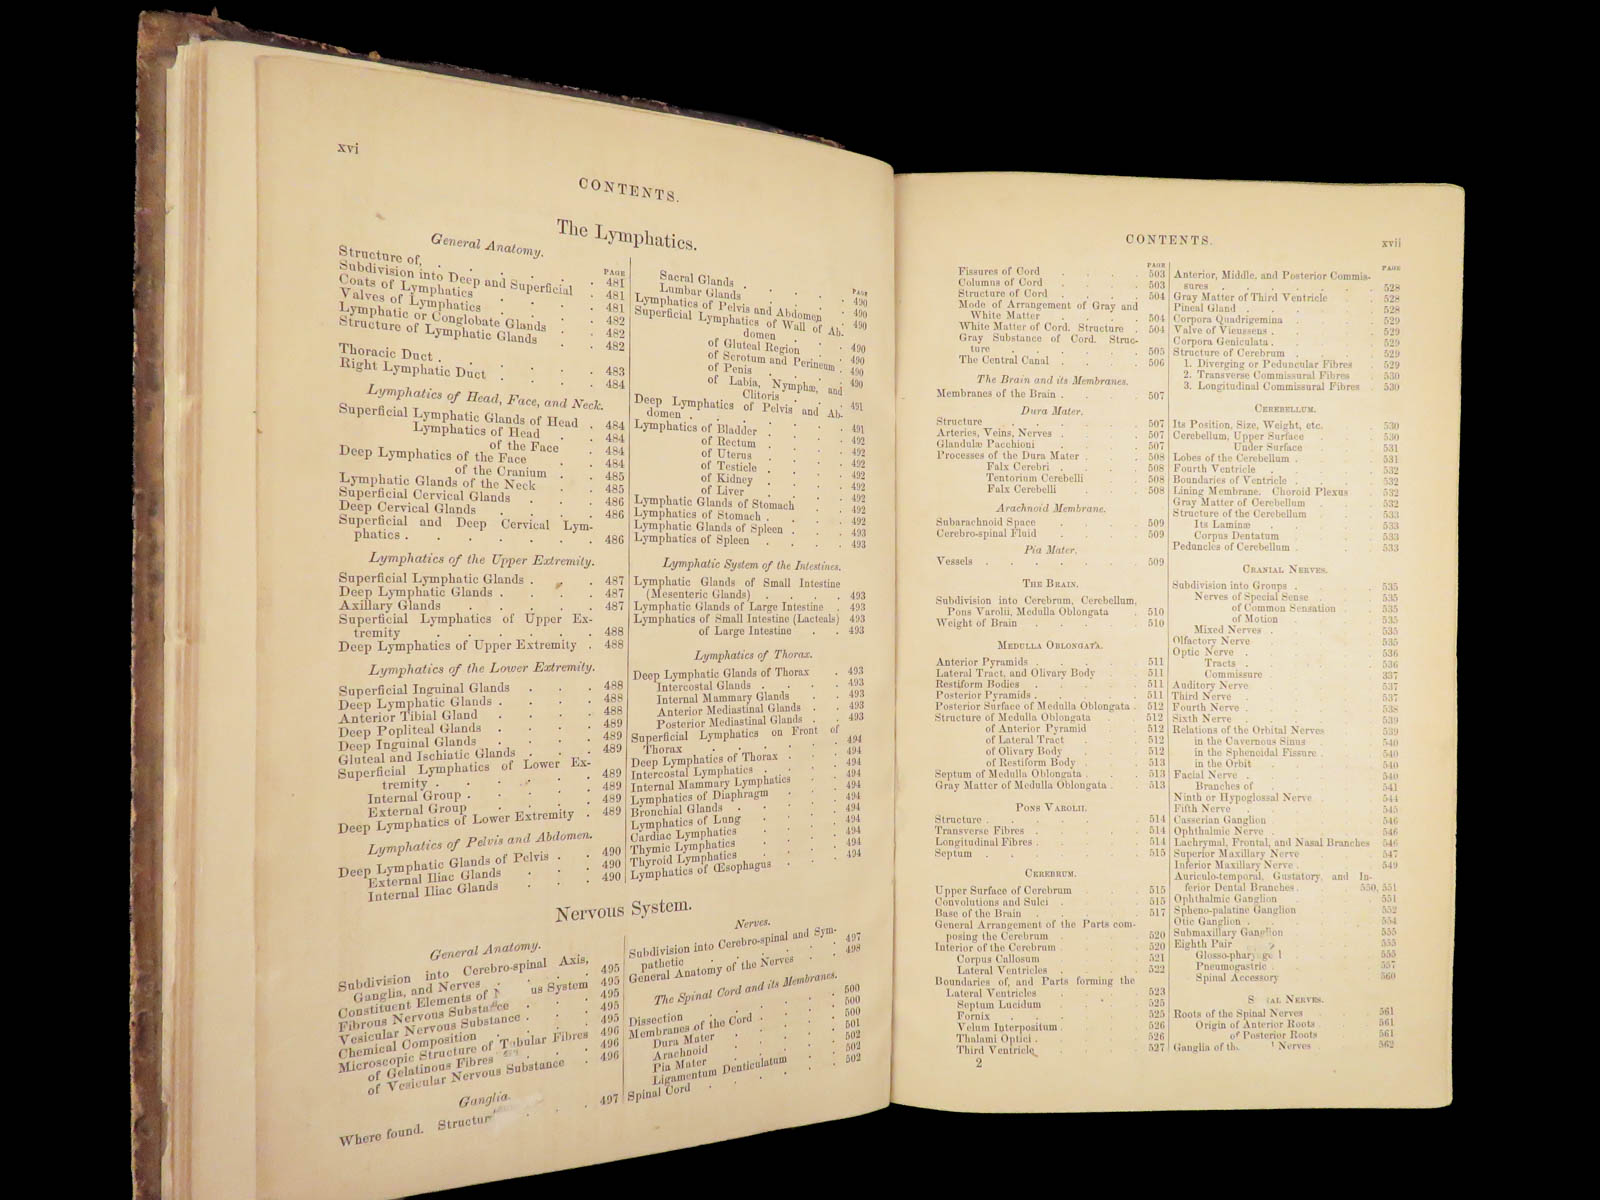 xvi
CONTENTS.
The Lymphatics.
General Anatomy.
PAGE
Structure of, . . . . . . 481
Subdivision into Deep and Superficial . 481
Coats of Lymphatics . . . . 481
Valves of Lymphatics . . . . 482
Lymphatic or Conglobate Glands . . 482
Structure of Lymphatic Glands . . 482
Thoracic Duct . . . . . 483
Right Lymphatic Duct . . . . 484
Lymphatics of Head, Face, and Neck.
Superficial Lymphatic Glands of Head . 484
Lymphatics of Head . . 484
of the Face . . 484
Deep Lymphatics of the Face . . 484
of the Cranium . . 485
Lymphatic Glands of the Neck . . 485
Superficial Cervical Glands . . . 486
Deep Cervical Glands . . . . 486
Superficial and Deep Cervical Lym-
phatics . . . . . . . 486
Lymphatics of the Upper Extremity.
Superficial Lymphatic Glands . . . 487
Deep Lymphatic Glands . . . . 487
Axillary Glands . . . . . 487
Superficial Lymphatics of Upper Ex-
tremity . . . . . . 488
Deep Lymphatics of Upper Extremity . 488
Lymphatics of the Lower Extremity.
Superficial Inguinal Glands . . . 488
Deep Lymphatic Glands . . . . 488
Anterior Tibial Gland . . . . 488
Deep Popliteal Glands . . . . 489
Deep Inguinal Glands . . . . 489
Gluteal and Ischiatic Glands . . . 489
Superficial Lymphatics of Lower Ex-
tremity . . . . . . 489
Internal Group . . . . . 489
External Group . . . . . 489
Deep Lymphatics of Lower Extremity . 489
Lymphatics of Pelvis and Abdomen.
Deep Lymphatic Glands of Pelvis . . 490
External Iliac Glands . . . 490
Internal Iliac Glands . . . 490
PAGE
Sacral Glands . . . . . 490
Lumbar Glands . . . . 490
Lymphatics of Pelvis and Abdomen . 490
Superficial Lymphatics of Wall of Ab-
domen . . . 490
of Gluteal Region . . 490
of Scrotum and Perineum . 490
of Penis . . . . 490
of Labia, Nymphæ, and
Clitoris . . . 491
Deep Lymphatics of Pelvis and Ab-
domen . . . . . . 491
Lymphatics of Bladder . . . . 492
of Rectum . . . . 492
of Uterus . . . . 492
of Testicle . . . . 492
of Kidney . . . . 492
of Liver . . . . 492
Lymphatic Glands of Stomach . . 492
Lymphatics of Stomach . . . . 492
Lymphatic Glands of Spleen . . . 493
Lymphatics of Spleen . . . . 493
Lymphatic System of the Intestines.
Lymphatic Glands of Small Intestine
(Mesenteric Glands) . . . . 493
Lymphatic Glands of Large Intestine . 493
Lymphatics of Small Intestine (Lacteals) 493
of Large Intestine . . 493
Lymphatics of Thorax.
Deep Lymphatic Glands of Thorax . 493
Intercostal Glands . . . . 493
Internal Mammary Glands . . 493
Anterior Mediastinal Glands . . 493
Posterior Mediastinal Glands . . 493
Superficial Lymphatics on Front of
Thorax . . . . . . 494
Deep Lymphatics of Thorax . . . 494
Intercostal Lymphatics . . . . 494
Internal Mammary Lymphatics . . 494
Lymphatics of Diaphragm . . . 494
Bronchial Glands . . . . . 494
Lymphatics of Lung . . . . 494
Cardiac Lymphatics . . . . 494
Thymic Lymphatics . . . . 494
Thyroid Lymphatics . . . . 494
Lymphatics of Œsophagus . . . 494
Nervous System.
General Anatomy.
Subdivision into Cerebro-spinal Axis,
Ganglia, and Nerves . . . . 495
Constituent Elements of us System 495
Fibrous Nervous Substance . . . 495
Vesicular Nervous Substance . . . 495
Chemical Composition . . . . 495
Microscopic Structure of Tubular Fibres 496
of Gelatinous Fibres . . . 496
of Vesicular Nervous Substance . 496
Ganglia.
Where found. Structur . . . 497
Nerves.
Subdivision into Cerebro-spinal and Sym-
pathetic . . . . . . 497
General Anatomy of the Nerves . . 498
The Spinal Cord and its Membranes.
Dissection . . . . . . 500
Membranes of the Cord . . . . 500
Dura Mater . . . . . 500
Arachnoid . . . . . 501
Pia Mater . . . . . 502
Ligamentum Denticulatum . . 502
Spinal Cord . . . . . . 502
CONTENTS.
xvii
PAGE
Fissures of Cord . . . . 503
Columns of Cord . . . . 503
Structure of Cord . . . . 504
Mode of Arrangement of Gray and
White Matter . . . . 504
White Matter of Cord. Structure . 504
Gray Substance of Cord. Struc-
ture . . . . . 505
The Central Canal . . . . 506
The Brain and its Membranes.
Membranes of the Brain . . . . 507
Dura Mater.
Structure . . . . . . 507
Arteries, Veins, Nerves . . . . 507
Glandulæ Pacchioni . . . . 507
Processes of the Dura Mater . . . 508
Falx Cerebri . . . . 508
Tentorium Cerebelli . . . 508
Falx Cerebelli . . . . 508
Arachnoid Membrane.
Subarachnoid Space . . . . 509
Cerebro-spinal Fluid . . . . 509
Pia Mater.
Vessels . . . . . . 509
THE BRAIN.
Subdivision into Cerebrum, Cerebellum,
Pons Varolii, Medulla Oblongata . 510
Weight of Brain . . . . . 510
MEDULLA OBLONGATA.
Anterior Pyramids . . . . . 511
Lateral Tract, and Olivary Body . . 511
Restiform Bodies . . . . . 511
Posterior Pyramids . . . . . 511
Posterior Surface of Medulla Oblongata . 512
Structure of Medulla Oblongata . . 512
of Anterior Pyramid . . 512
of Lateral Tract . . . 512
of Olivary Body . . . 512
of Restiform Body . . . 513
Septum of Medulla Oblongata . . . 513
Gray Matter of Medulla Oblongata . . 513
PONS VAROLII.
Structure . . . . . . 514
Transverse Fibres . . . . . 514
Longitudinal Fibres . . . . . 514
Septum . . . . . . 515
CEREBRUM.
Upper Surface of Cerebrum . . . 515
Convolutions and Sulci . . . . 515
Base of the Brain . . . . . 517
General Arrangement of the Parts com-
posing the Cerebrum . . . . 520
Interior of the Cerebrum . . . . 520
Corpus Callosum . . . . 521
Lateral Ventricles . . . . 522
Boundaries of, and Parts forming the
Lateral Ventricles . . . . 523
Septum Lucidum . . . . 525
Fornix . . . . . 525
Velum Interpositum . . . . 526
Thalami Optici . . . . . 526
Third Ventricle . . . . 527
2
PAGE
Anterior, Middle, and Posterior Commis-
sures . . . . . . 528
Gray Matter of Third Ventricle . . 528
Pineal Gland . . . . . 528
Corpora Quadrigemina . . . . 529
Valve of Vieussens . . . . . 529
Corpora Geniculata . . . . . 529
Structure of Cerebrum . . . . 529
1. Diverging or Peduncular Fibres . 529
2. Transverse Commissural Fibres . 530
3. Longitudinal Commissural Fibres . 530
CEREBELLUM.
Its Position, Size, Weight, etc. . . 530
Cerebellum, Upper Surface . . . 530
Under Surface . . . 531
Lobes of the Cerebellum . . . . 531
Fourth Ventricle . . . . . 532
Boundaries of Ventricle . . . . 532
Lining Membrane. Choroid Plexus . 532
Gray Matter of Cerebellum . . . 532
Structure of the Cerebellum . . . 533
Its Laminæ . . . . . 533
Corpus Dentatum . . . . 533
Peduncles of Cerebellum . . . . 533
CRANIAL NERVES.
Subdivision into Groups . . . . 535
Nerves of Special Sense . . . 535
of Common Sensation . . 535
of Motion . . . . 535
Mixed Nerves . . . . . 535
Olfactory Nerve . . . . . 535
Optic Nerve . . . . . 536
Tracts . . . . . 536
Commissure . . . . 337
Auditory Nerve . . . . . 537
Third Nerve . . . . . 537
Fourth Nerve . . . . . 538
Sixth Nerve . . . . . 539
Relations of the Orbital Nerves . . 539
in the Cavernous Sinus . . . 540
in the Sphenoidal Fissure . . . 540
in the Orbit . . . . . 540
Facial Nerve . . . . . 540
Branches of . . . . . 541
Ninth or Hypoglossal Nerve . . . 544
Fifth Nerve . . . . . 545
Casserian Ganglion . . . . . 546
Ophthalmic Nerve . . . . . 546
Lachrymal, Frontal, and Nasal Branches 546
Superior Maxillary Nerve . . . 547
Inferior Maxillary Nerve . . . . 549
Auriculo-temporal, Gustatory, and In-
ferior Dental Branches . . . 550, 551
Ophthalmic Ganglion . . . . 551
Spheno-palatine Ganglion . . . 552
Otic Ganglion . . . . . 554
Submaxillary Ganglion . . . . 555
Eighth Pair . . . . . 555
Glosso-pharynge l . . . 555
Pneumogastric . . . . 557
Spinal Accessory . . . . 560
S AL NERVES.
Roots of the Spinal Nerves . . . 561
Origin of Anterior Roots . . . 561
of Posterior Roots . . 561
Ganglia of th Nerves . . . 562